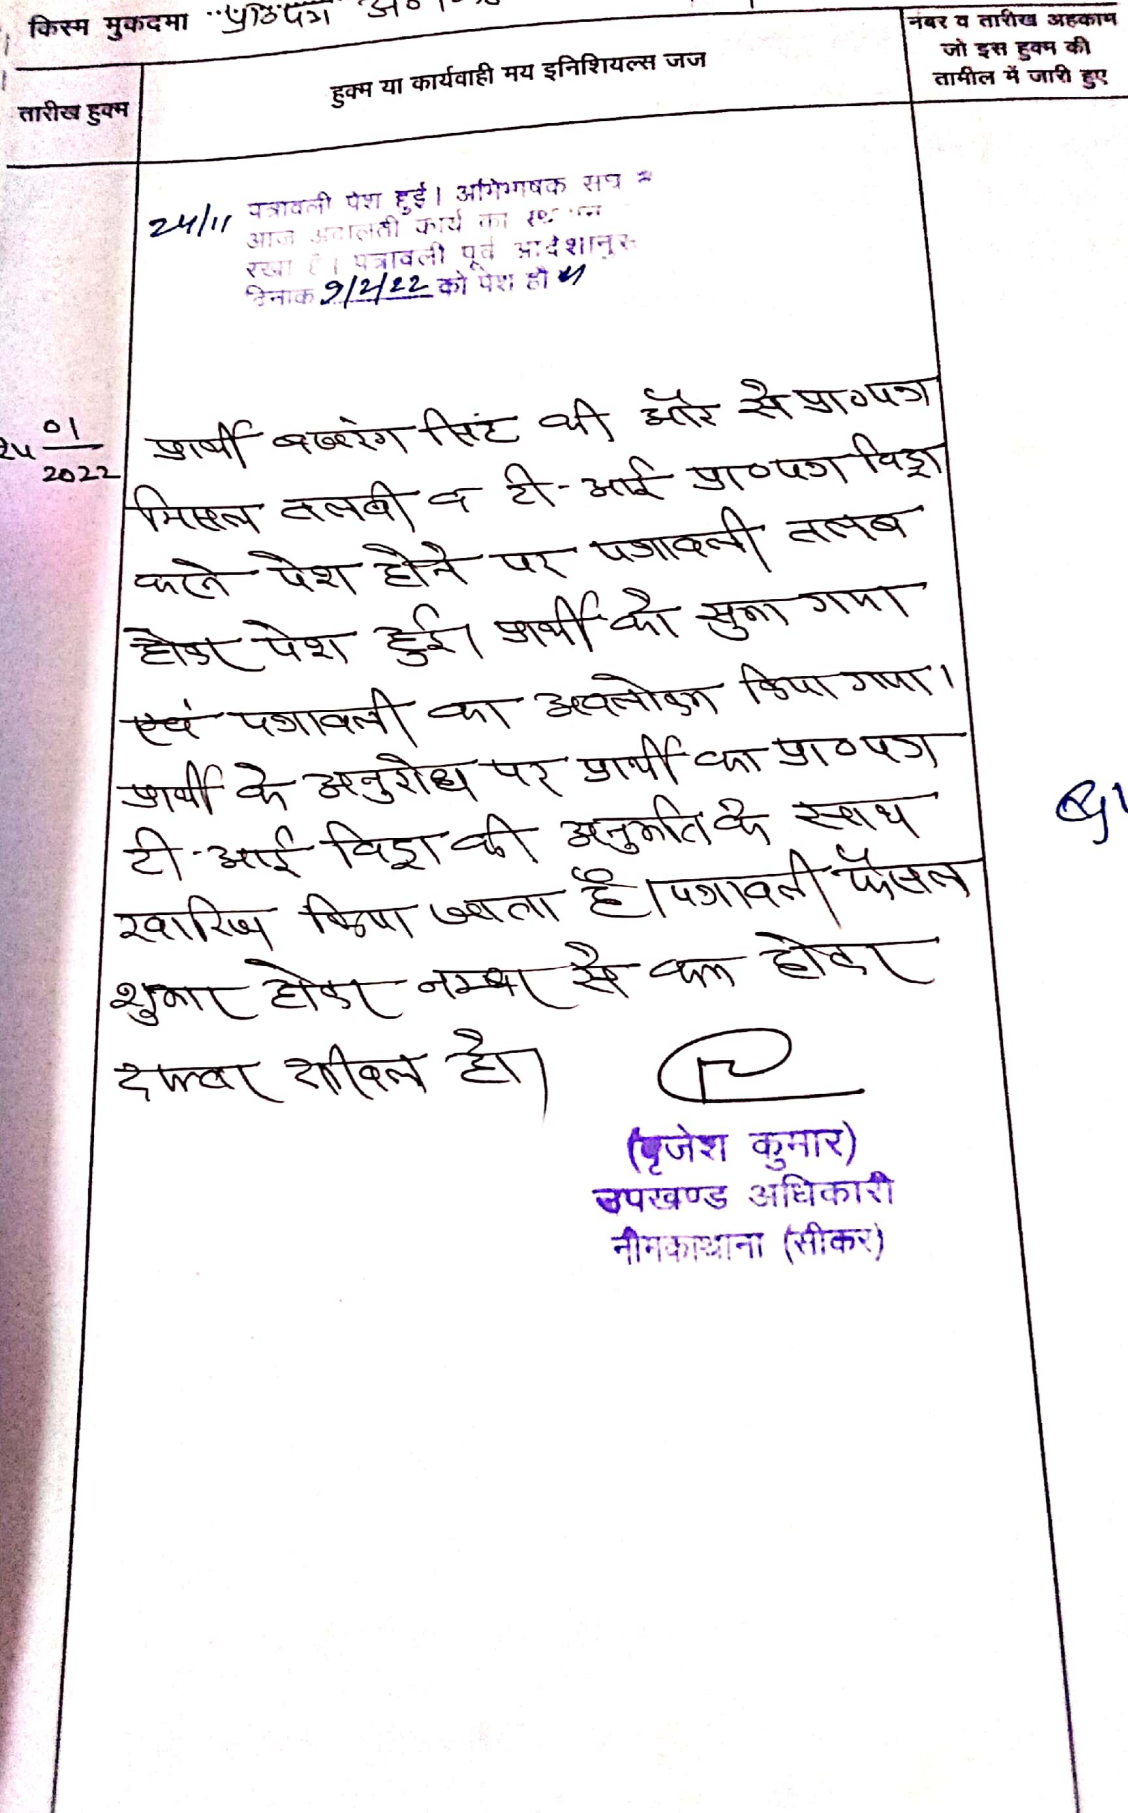 किस्म मुकदमा प्रा०पत्र
तारीख हुक्म
हुक्म या कार्यवाही मय इनिशियल्स जज
नंबर व तारीख अहकाम
जो इस हुक्म की
तामील में जारी हुए
24/11 पत्रावली पेश हुई। अभिभाषक संघ ने
आज अदालती कार्य का स्थगन
रखा है। पत्रावली पूर्व आदेशानुसार
दिनांक 9/2/22 को पेश हो
25 01/2022
प्रार्थी बजरंग सिंह की ओर से प्रा०पत्र
मिसल तलबी व टी-आई प्रा०पत्र विड्रा
करने पेश होने पर पत्रावली तलब
होकर पेश हुई। प्रार्थी को सुना गया
एवं पत्रावली का अवलोकन किया गया।
प्रार्थी के अनुरोध पर प्रार्थी का प्रा०पत्र
टी-आई विड्रा की अनुमति के साथ
खारिज किया जाता है। पत्रावली फैसल
शुमार होकर नम्बर से कम होकर
दफ्तर दाखिल हो।
(बृजेश कुमार)
उपखण्ड अधिकारी
नीमकाथाना (सीकर)